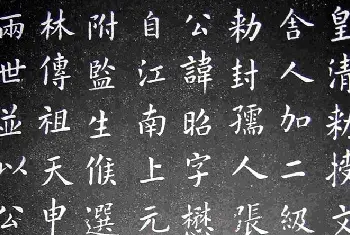 皇清勅授文
舍人加二級
勅封孺人張
公諱昭字懋
自江南上元
附監生候選
林傳祖天申
兩世並以公